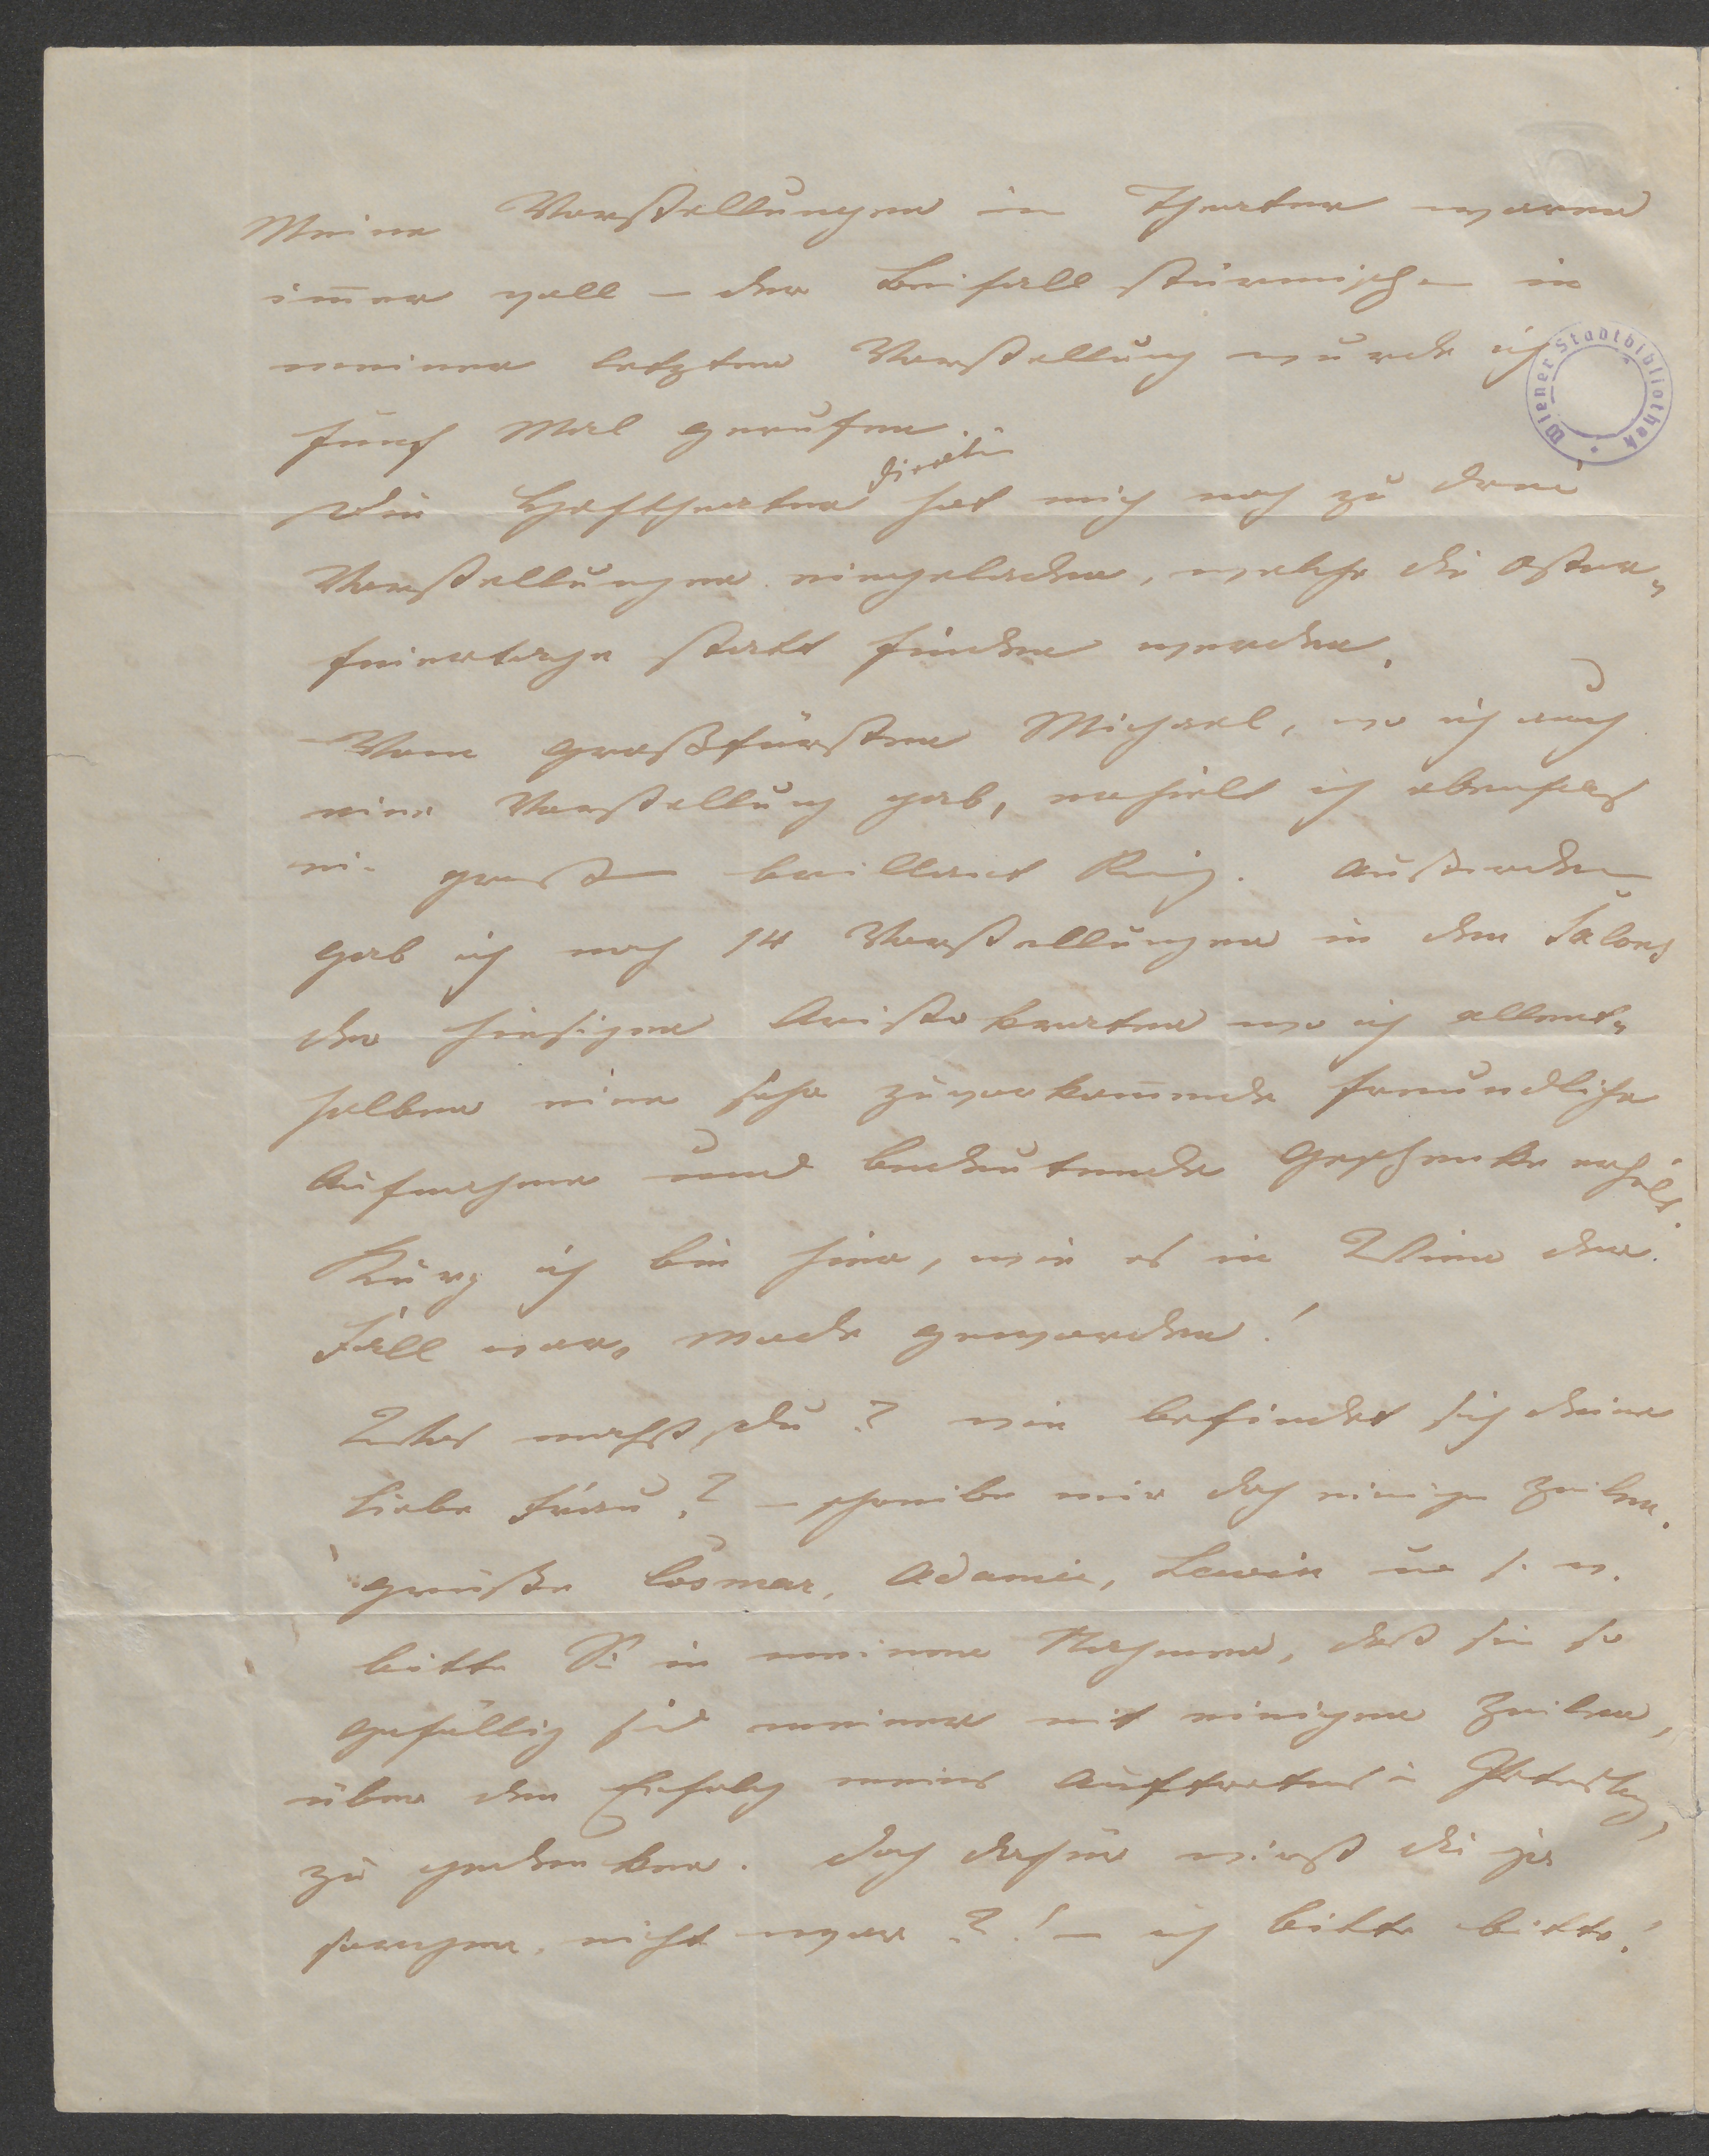 Meine Vorstellungen im Theater waren
im̅er voll – der Beifall stürmisch – in
meiner letzten Vorstellung wurde ich
fünf Mal gerufen.
Die Hoftheater
direktion
hat mich noch zu drei
Vorstellungen eingeladen, welche die Oster-
feiertage statt finden werden.
Vom Großfürsten Michael, wo ich auch
eine Vorstellung gab, erhielt ich ebenfals
ein großen brillant Ring. Außerdem
gab ich noch 14 Vorstellungen in den Salons
der hiesigen Aristokraten wo ich allent-
halben eine sehr zuvorkom̅ende freundliche
Aufnahme und bedeutende Geschenke erhielt.
Kurz ich bin hier, wie es in Wien der
Fall war, Mode geworden!
Was machst du? wie befindet sich deine
liebe Frau? – schreibe mir doch einige Zeilen.
grüße Cosmar, Adami, Lewin u. s. w.
bitte Sie in meinem Nahmen, daß sie so
gefällig sind meiner mit einigen Zeilen,
über den Erfolg meines Auftretens in Petersbg,
zu gedenken. doch dafür wirst du ja
sorgen, nicht war?! – ich bitte bitte!
Wiener Stadtbibliothek